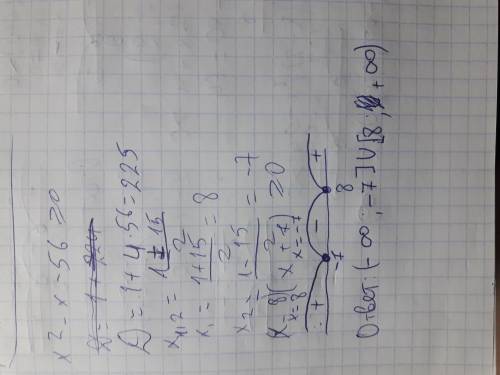 x² - x - 56 ≥ 0
D = 1 + 4·56 = 225
x₁,₂ = (1 ± 15)/2
x₁ = (1 + 15)/2 = 8
x₂ = (1 - 15)/2 = -7
(x - 8)(x + 7) ≥ 0
x = 8 x = -7
+ - +
-7 8
Ответ: (-∞; -7] U [8; +∞)